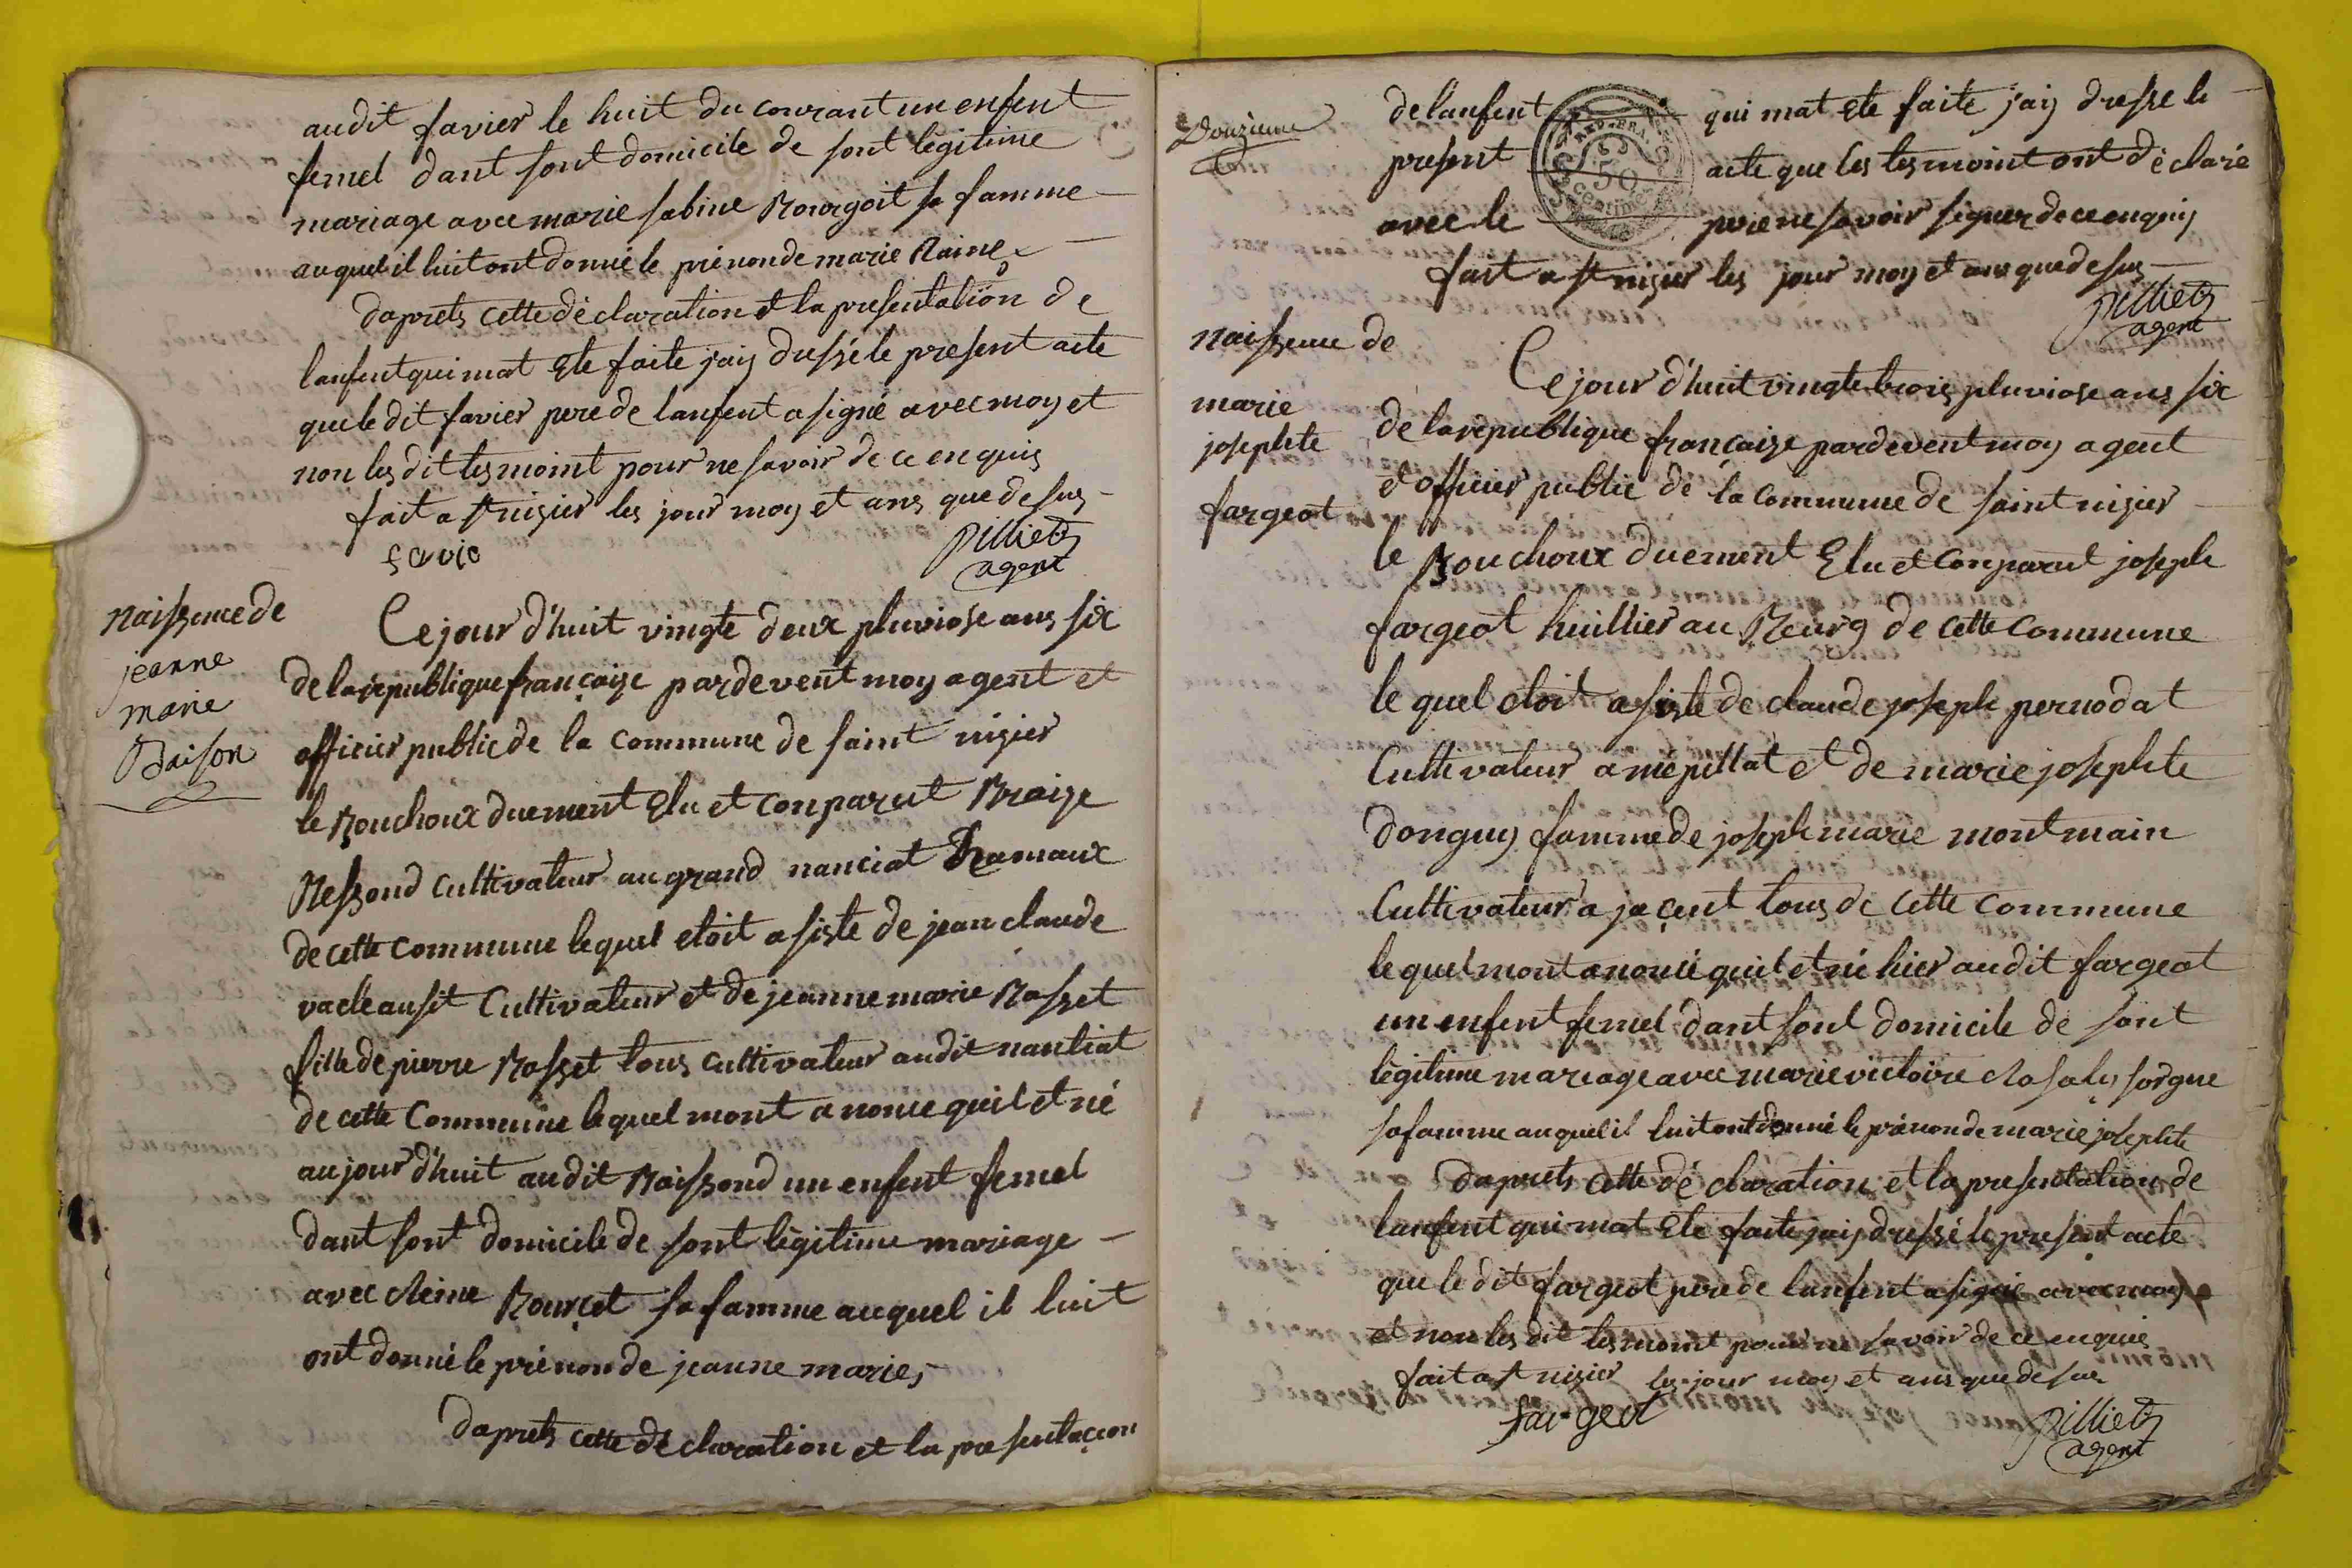 audit favier le huit du courant un enfent
femel dant sont domicile de sont légitime
mariage avec marie sabine Bourgoit sa famme
auquel il luit ont donné le prénon de marie Raine
daprets cette déclaration et la presentation de
lanfent qui mat Ete faite jaij dressé le present acte
que le dit favier pere de lanfent a signé avec moy et
non les dit tesmoint pour ne savoir de ce enquis
fait a st nizier les jour moy et ans que desus
favie
pilliet
agent
Naissence de
jeanne
marie
Baison
Ce jour d'huit vingte deux pluviose ans six
de la republique françaize pardevent moy agent et
officier public de la commune de saint nizier
le Bouchoux duement Elu et Conparut Braize
Ressond Cultivateur au grand nanciat hamaux
de cette Commune lequel etoit asiste de jean claude
vacle ausit Cultivateur et de jeanne marie Rasset
fille de pierre Rasset tous cultivateur audit nantiat
de cette Commune lequel mont anonce quil et né
au jour d'huit audit Raissond un enfent femel
dant sont domicile de sont légitime mariage
avec Rourcet sa famme auquel il luit
ont donné le prénon de jeanne marie
daprets cette déclaration et la presentacion
Douzieme
de lanfent qui mat Ete faite jaij dresse le
present acte que les tesmoint ont déclaré
avec le pere ne savoir signer de ce enquis
fait a st nizier les jour moy et ans que desus
REP. FRA.
50
centime
pilliet
agent
Naissence de
marie
josephte
fargeot
Ce jour d'huit vingte trois pluviose ans six
de la république françaize pardevent moy agent
et officier public de la Commune de saint nizier
le Bouchoux duement Elu et Conparut joseph
fargeot huillier au Bourg de cette Commune
le quel etoit asiste de claude joseph pernodat
Cultivateur a mépillat et de marie josephte
donguy famme de joseph marie montmain
Cultivateur a jaçent tous de cette Commune
le quel mont anoncé quil et né hier audit fargeot
un enfent femel dant sont domicile de sont
légitime mariage avec marie victoire Rosaly sorgue
sa famme auquel il luit ont donné le prénon de marie josephte
daprets cette déclaration et la presentation de
lanfent qui mat Ete faite jaij dressé le present acte
que le dit fargeot pere de lanfent a signé avec moy
et non les dit tesmoint pour ne savoir de ce enquis
fait a st nizier les jour moy et ans que desus
fargeot
pilliet
agent